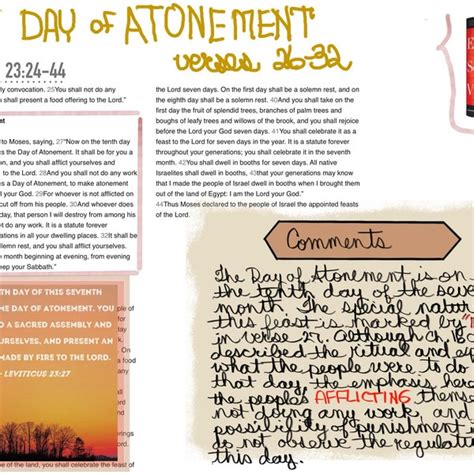 DAY of ATONEMENT
verses 26-32
23:24-44
ly convocation. 25You shall not do any
shall present a food offering to the Lord."
nt
to Moses, saying, 27"Now on the tenth day
s the Day of Atonement. It shall be for you a
n, and you shall afflict yourselves and
to the Lord. 28And you shall not do any work
s a Day of Atonement, to make atonement
r God. 29For whoever is not afflicted on
cut off from his people. 30And whoever does
day, that person I will destroy from among his
not do any work. It is a statute forever
rations in all your dwelling places. 32It shall be
olemn rest, and you shall afflict yourselves.
month beginning at evening, from evening
keep your Sabbath."
TH DAY OF THIS SEVENTH
HE DAY OF ATONEMENT. YOU
D A SACRED ASSEMBLY AND
URSELVES, AND PRESENT AN
MADE BY FIRE TO THE LORD.
- LEVITICUS 23:27
ple of
you shall celebrate the feast of
the Lord seven days. On the first day shall be a solemn rest, and on
the eighth day shall be a solemn rest. 40And you shall take on
the first day the fruit of splendid trees, branches of palm trees and
boughs of leafy trees and willows of the brook, and you shall rejoice
before the Lord your God seven days. 41You shall celebrate it as a
feast to the Lord for seven days in the year. It is a statute forever
throughout your generations; you shall celebrate it in the seventh
month. 42You shall dwell in booths for seven days. All native
Israelites shall dwell in booths, 43that your generations may know
that I made the people of Israel dwell in booths when I brought them
out of the land of Egypt: I am the Lord your God."
44Thus Moses declared to the people of Israel the appointed feasts
of the Lord.
Comments
The Day of Atonement is on
the tenth day of the seve
month. The special natur
this feast is marked by
in verse 27. Although ch. 16
described the ritual and
what the people were to do
that day, the emphasis here
the people's AFFLICTING thems
not doing any work, and
possibility of punishment
do not observe the regulati
this day.